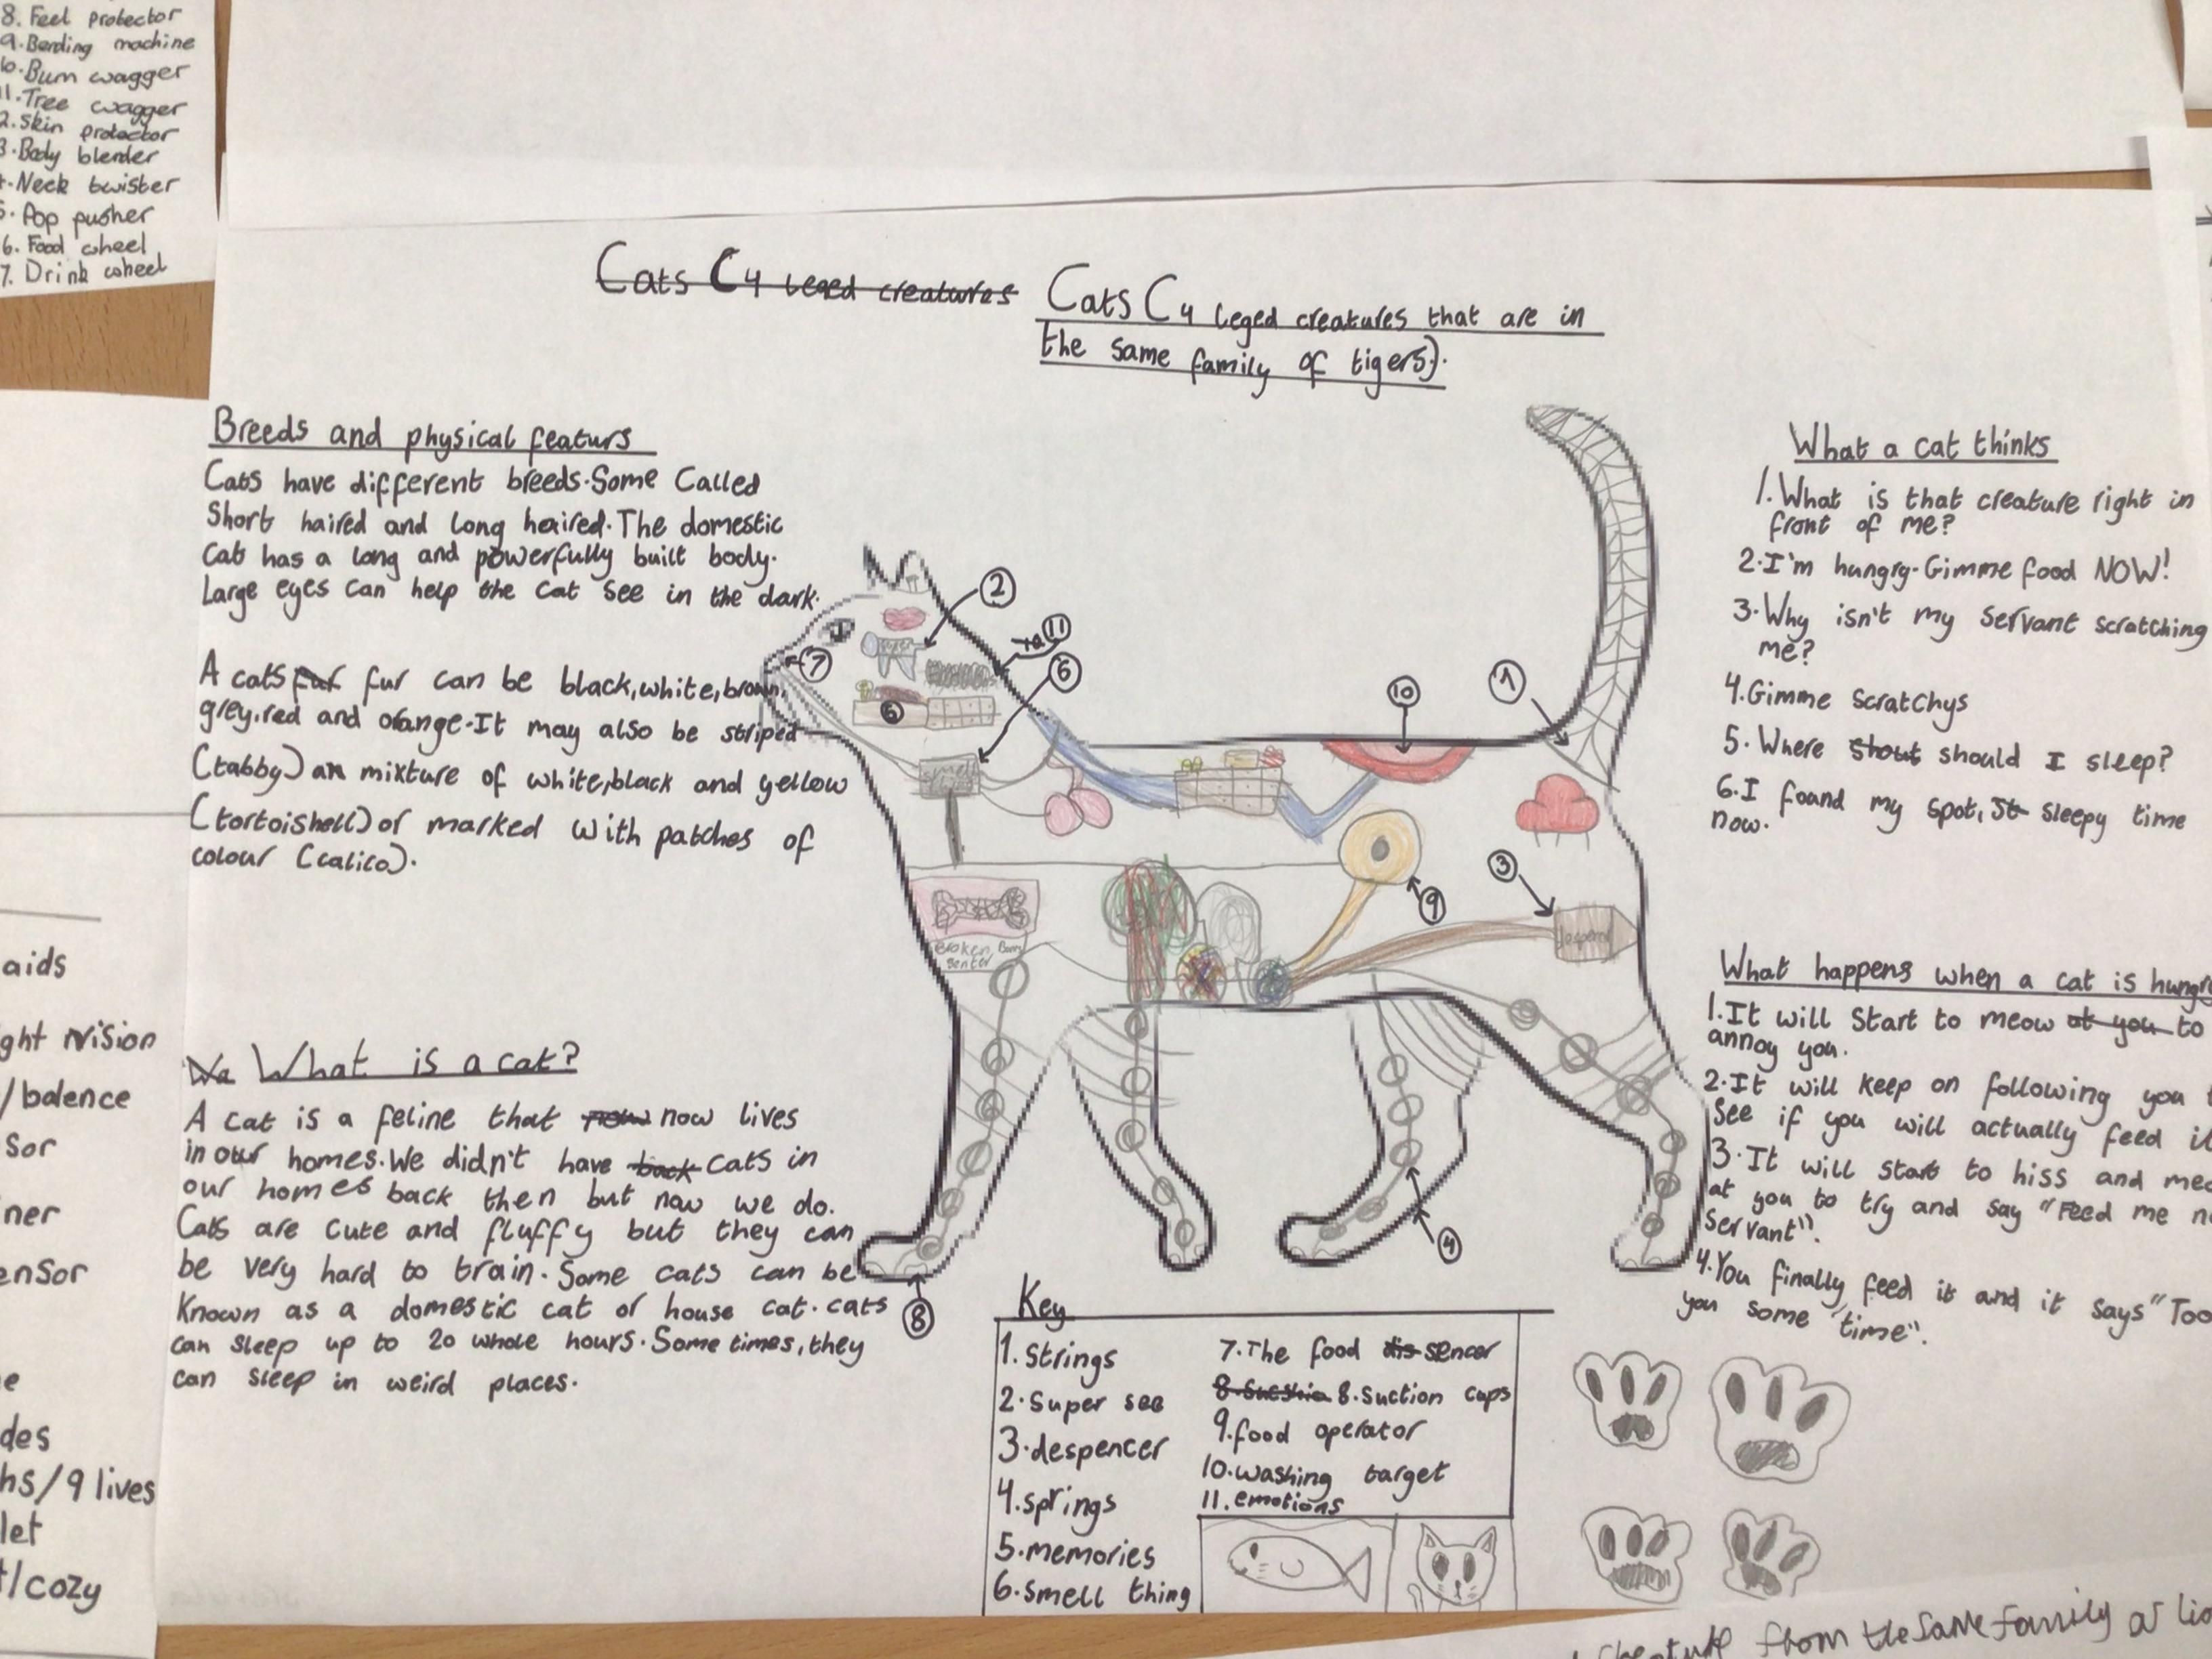 8. Feel protector
9. Bending machine
10. Bum wagger
11. Tree wagger
2. Skin protector
3. Body blender
Neck twister
5. Pop pusher
6. Food wheel
7. Drink wheel
Cats C4 leged creatures
Cats C4 leged creatures that are in
the same family of tigers).
Breeds and physical featurs
Cats have different breeds. Some Called
Short haired and long haired. The domestic
cat has a long and powerfully built body.
Large eyes can help the cat see in the dark.
A cats fur fur can be black, white, brown,
grey, red and orange. It may also be striped
(tabby) an mixture of white, black and yellow
(tortoishell) or marked with patches of
colour (calico).
Wa What is a cat?
A cat is a feline that now now lives
in our homes. We didn't have back cats in
our homes back then but now we do.
Cats are cute and fluffy but they can
be very hard to train. Some cats can be
Known as a domestic cat or house cat. cats
can sleep up to 20 whole hours. Some times, they
can sleep in weird places.
2
11
6
7
5
10
1
3
9
4
8
super
smell
Broken Bone
Sentor
Key
1. Strings
2. Super see
3. despencer
4. springs
5. memories
6. smell thing
7. The food dis sencer
8. 8. suction cups
9. food operator
10. washing target
11. emotions
What a cat thinks
1. What is that creature right in
front of me?
2. I'm hungry. Gimme food NOW!
3. Why isn't my servant scratching
me?
4. Gimme scratchys
5. Where shout should I sleep?
6. I found my spot, St sleepy time
now.
What happens when a cat is hungr
1. It will Start to meow at you to
annoy you.
2. It will keep on following you t
see if you will actually feed it
3. It will start to hiss and meo
at you to try and say "Feed me n
Servant".
4. You finally feed it and it says "Too
you some "time".
aids
ght Vision
/balence
sor
ner
ensor
e
des
hs/9 lives
let
t/cozy
creature from the same family as lio